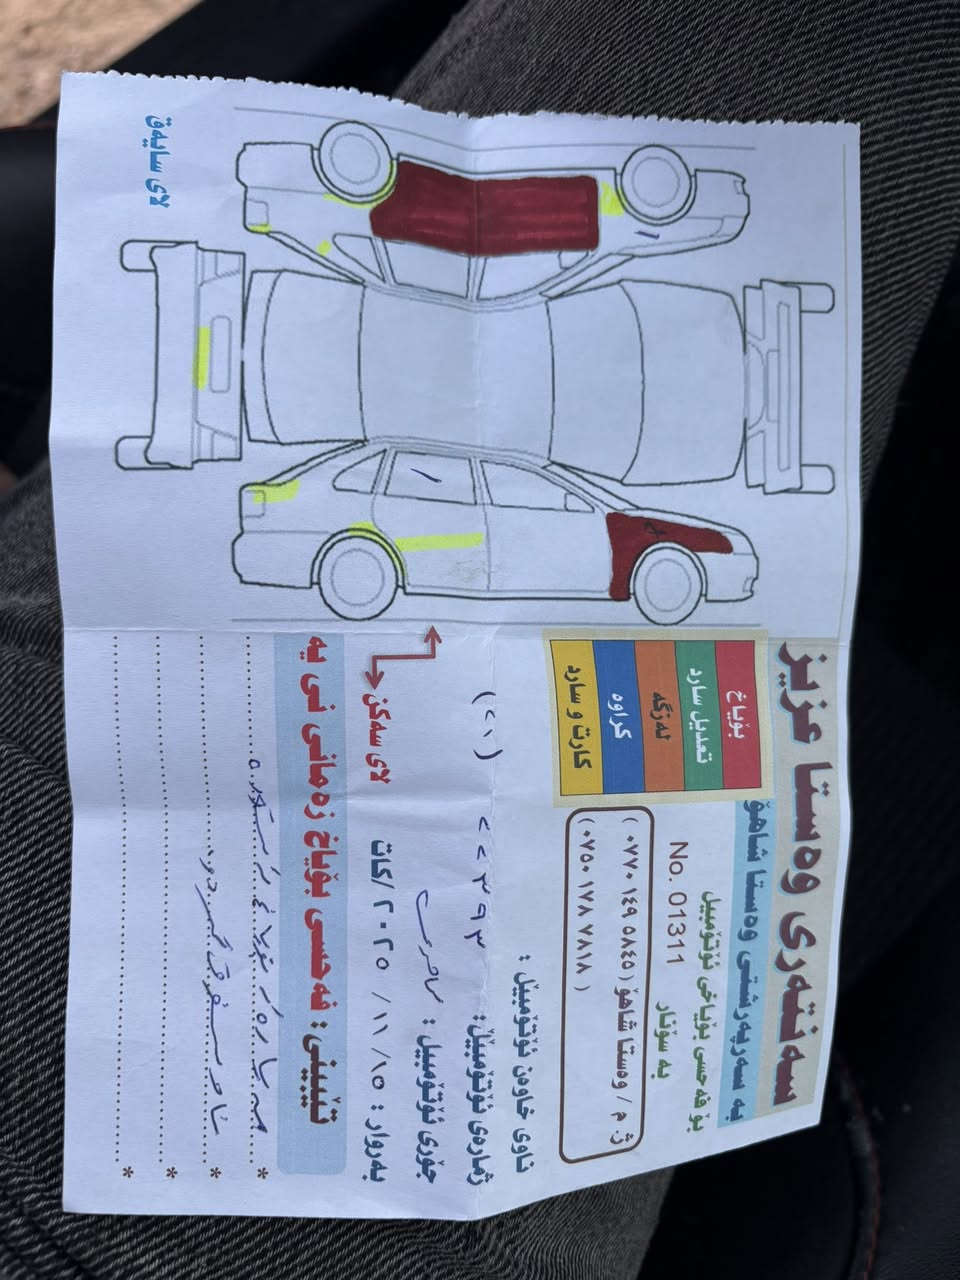 سەنتەری وەستا عزیز
بە سەرپەرشتی وەستا شاهۆ
بۆ فەحسی بۆیاخی ئۆتۆمبیل
بە سۆنار
No. 01311
ژ. م / وەستا شاهۆ ( ٠٧٧٠ ١٤٩ ٥٨٤٥ )
( ٠٧٥٠ ١٧٨ ٧٨١٨ )
بۆیاخ
تعدیل سارد
لەزگە
کراوە
کارت و سارد
ناوی خاوەن ئۆتۆمبێل :
ژمارەی ئۆتۆمبێل : ٢٢٣٩٣ (٢١)
جۆری ئۆتۆمبێل :
بەروار : ١٥ / ١١ / ٢٠٢٥ /کات
لای سەکن
تێبینی : فەحسی بۆیاخ زەمانی نی یە
*
*
*
*
لای سایەق